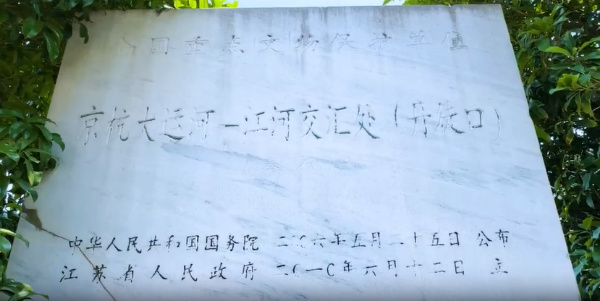 全国重点文物保护单位
京杭大运河—江河交汇处（丹徒口）
中华人民共和国国务院 二〇〇六年五月二十五日 公布
江苏省人民政府 二〇一〇年六月十二日 立